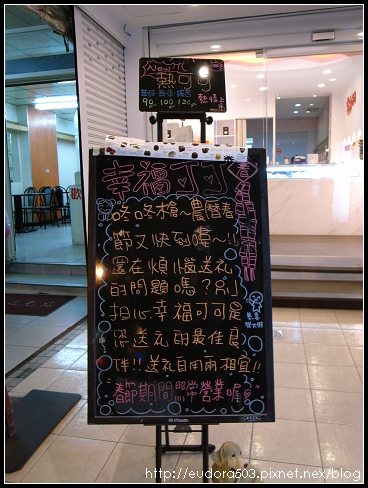 New
熱可可
90. 100. 120.
熱情上
幸福可可
咚咚槍~農曆春
節又快到嘍~!!
還在煩惱送礼
的問題嗎?別
担心幸福可可是
您送礼的最佳良
伴!!送礼自用兩相宜!!
春節期間照常營業喔
歡
http://eudora503.pixnet.net/blog